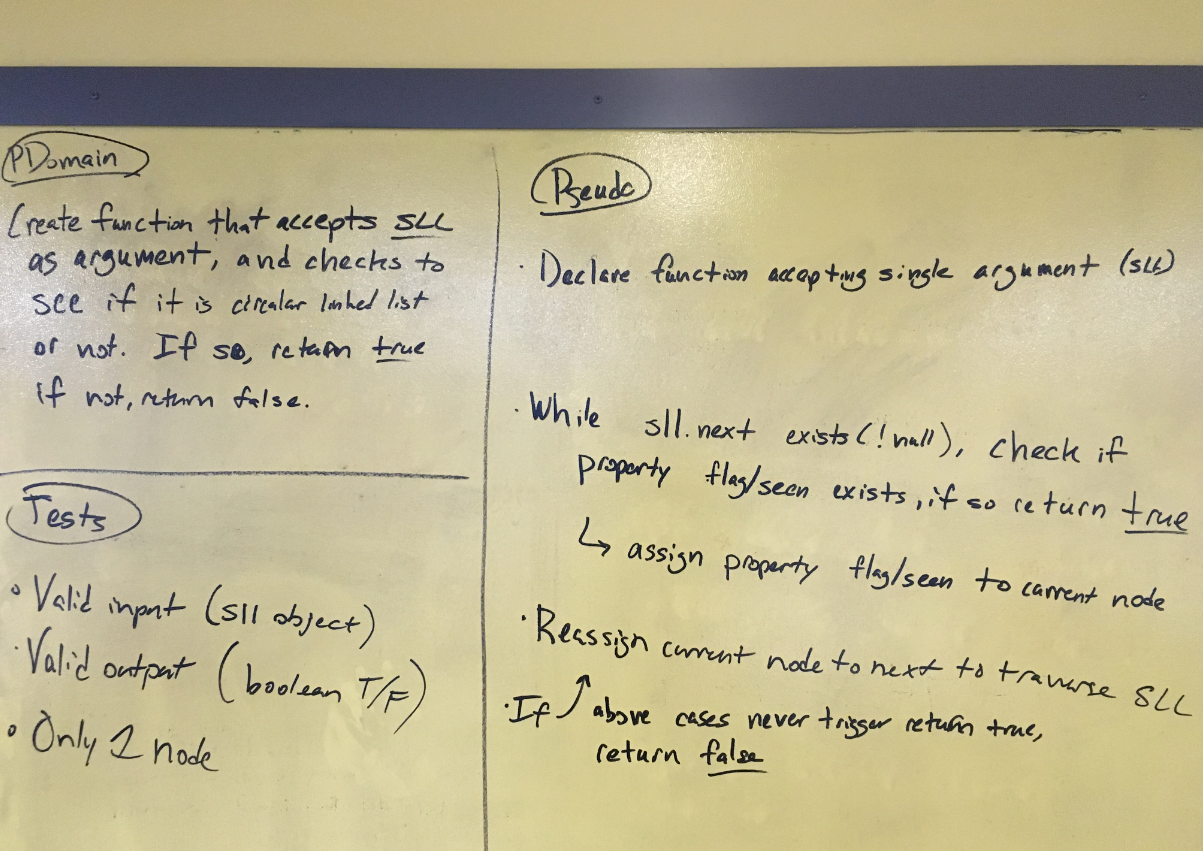 PDomain
Create function that accepts SLL
as argument, and checks to
see if it is circular linked list
or not. If so, return true
if not, return false.
Tests
• Valid input (sll object)
• Valid output (boolean T/F)
• Only 1 node
Pseudo
• Declare function accepting single argument (sll)
• While sll.next exists (!null), check if
property flag/seen exists, if so return true
↳ assign property flag/seen to current node
• Reassign current node to next to traverse SLL
• If above cases never trigger return true,
return false